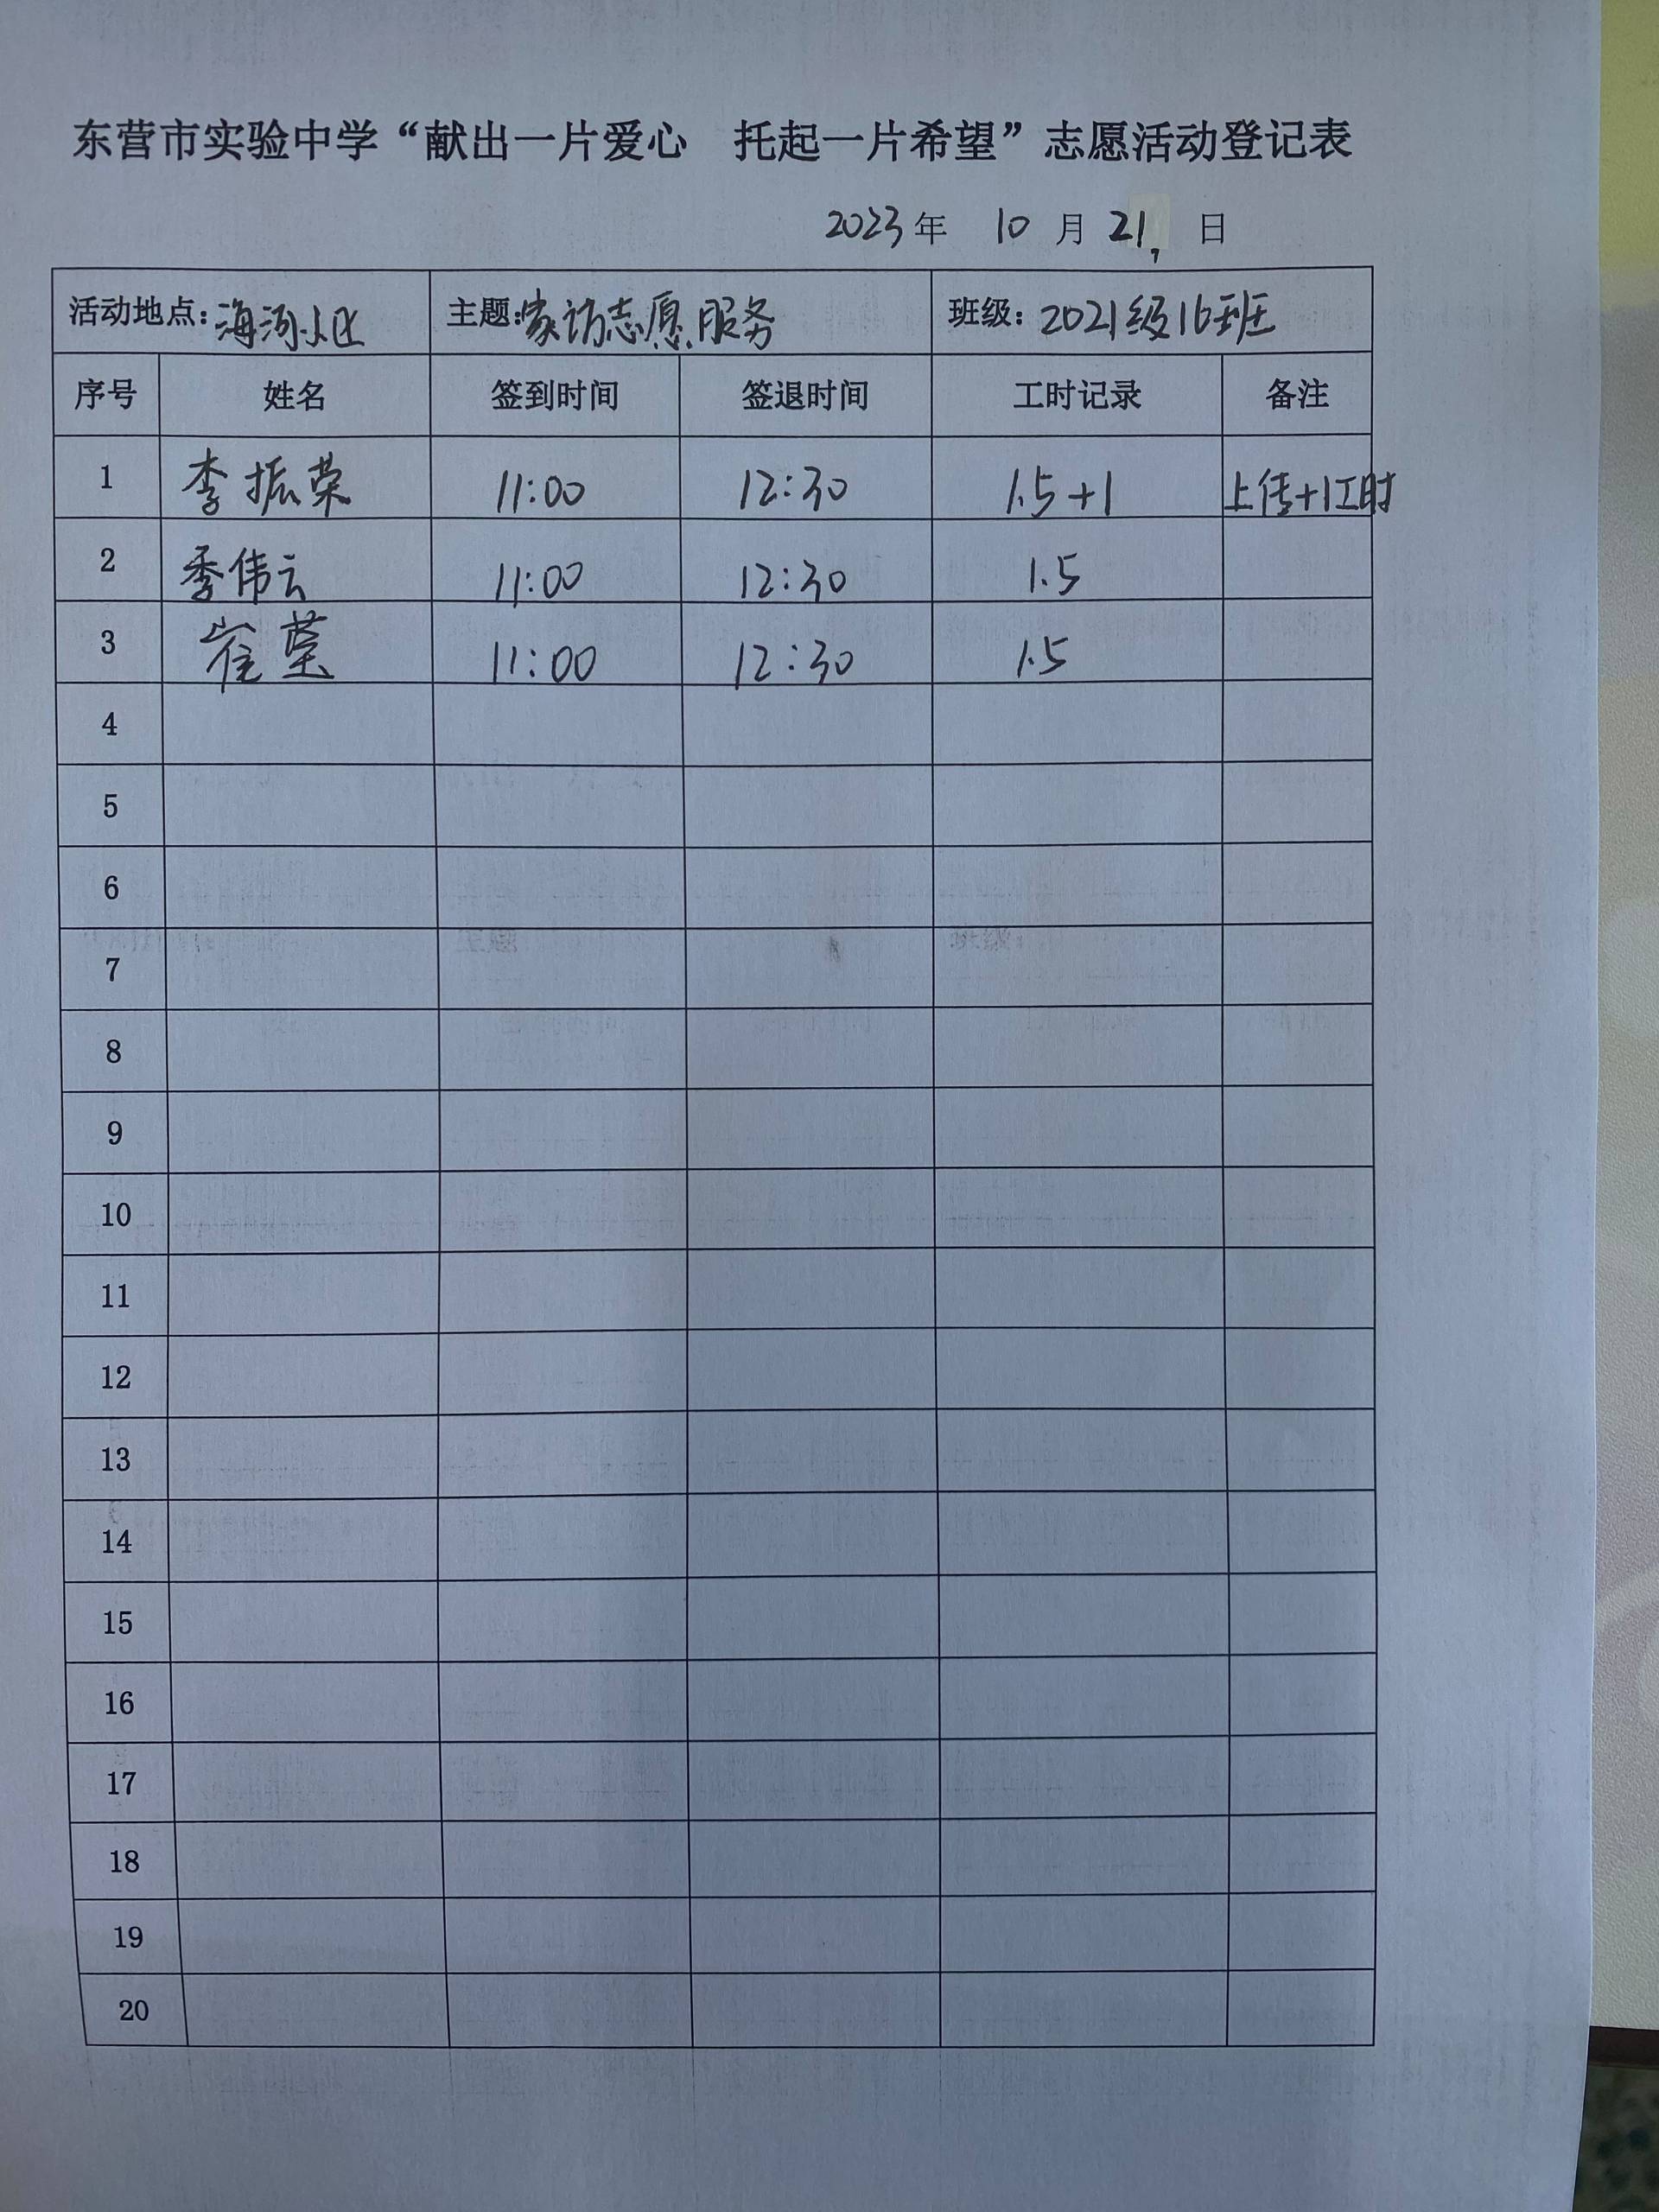 东营市实验中学“献出一片爱心 托起一片希望”志愿活动登记表
2023年 10月21日
活动地点:海河小区 主题:家访志愿服务 班级:2021级16班
序号 姓名 签到时间 签退时间 工时记录 备注
1 李振荣 11:00 12:30 1.5+1 上传+1工时
2 季伟云 11:00 12:30 1.5
3 崔 11:00 12:30 1.5
4
5
6
7
8
9
10
11
12
13
14
15
16
17
18
19
20